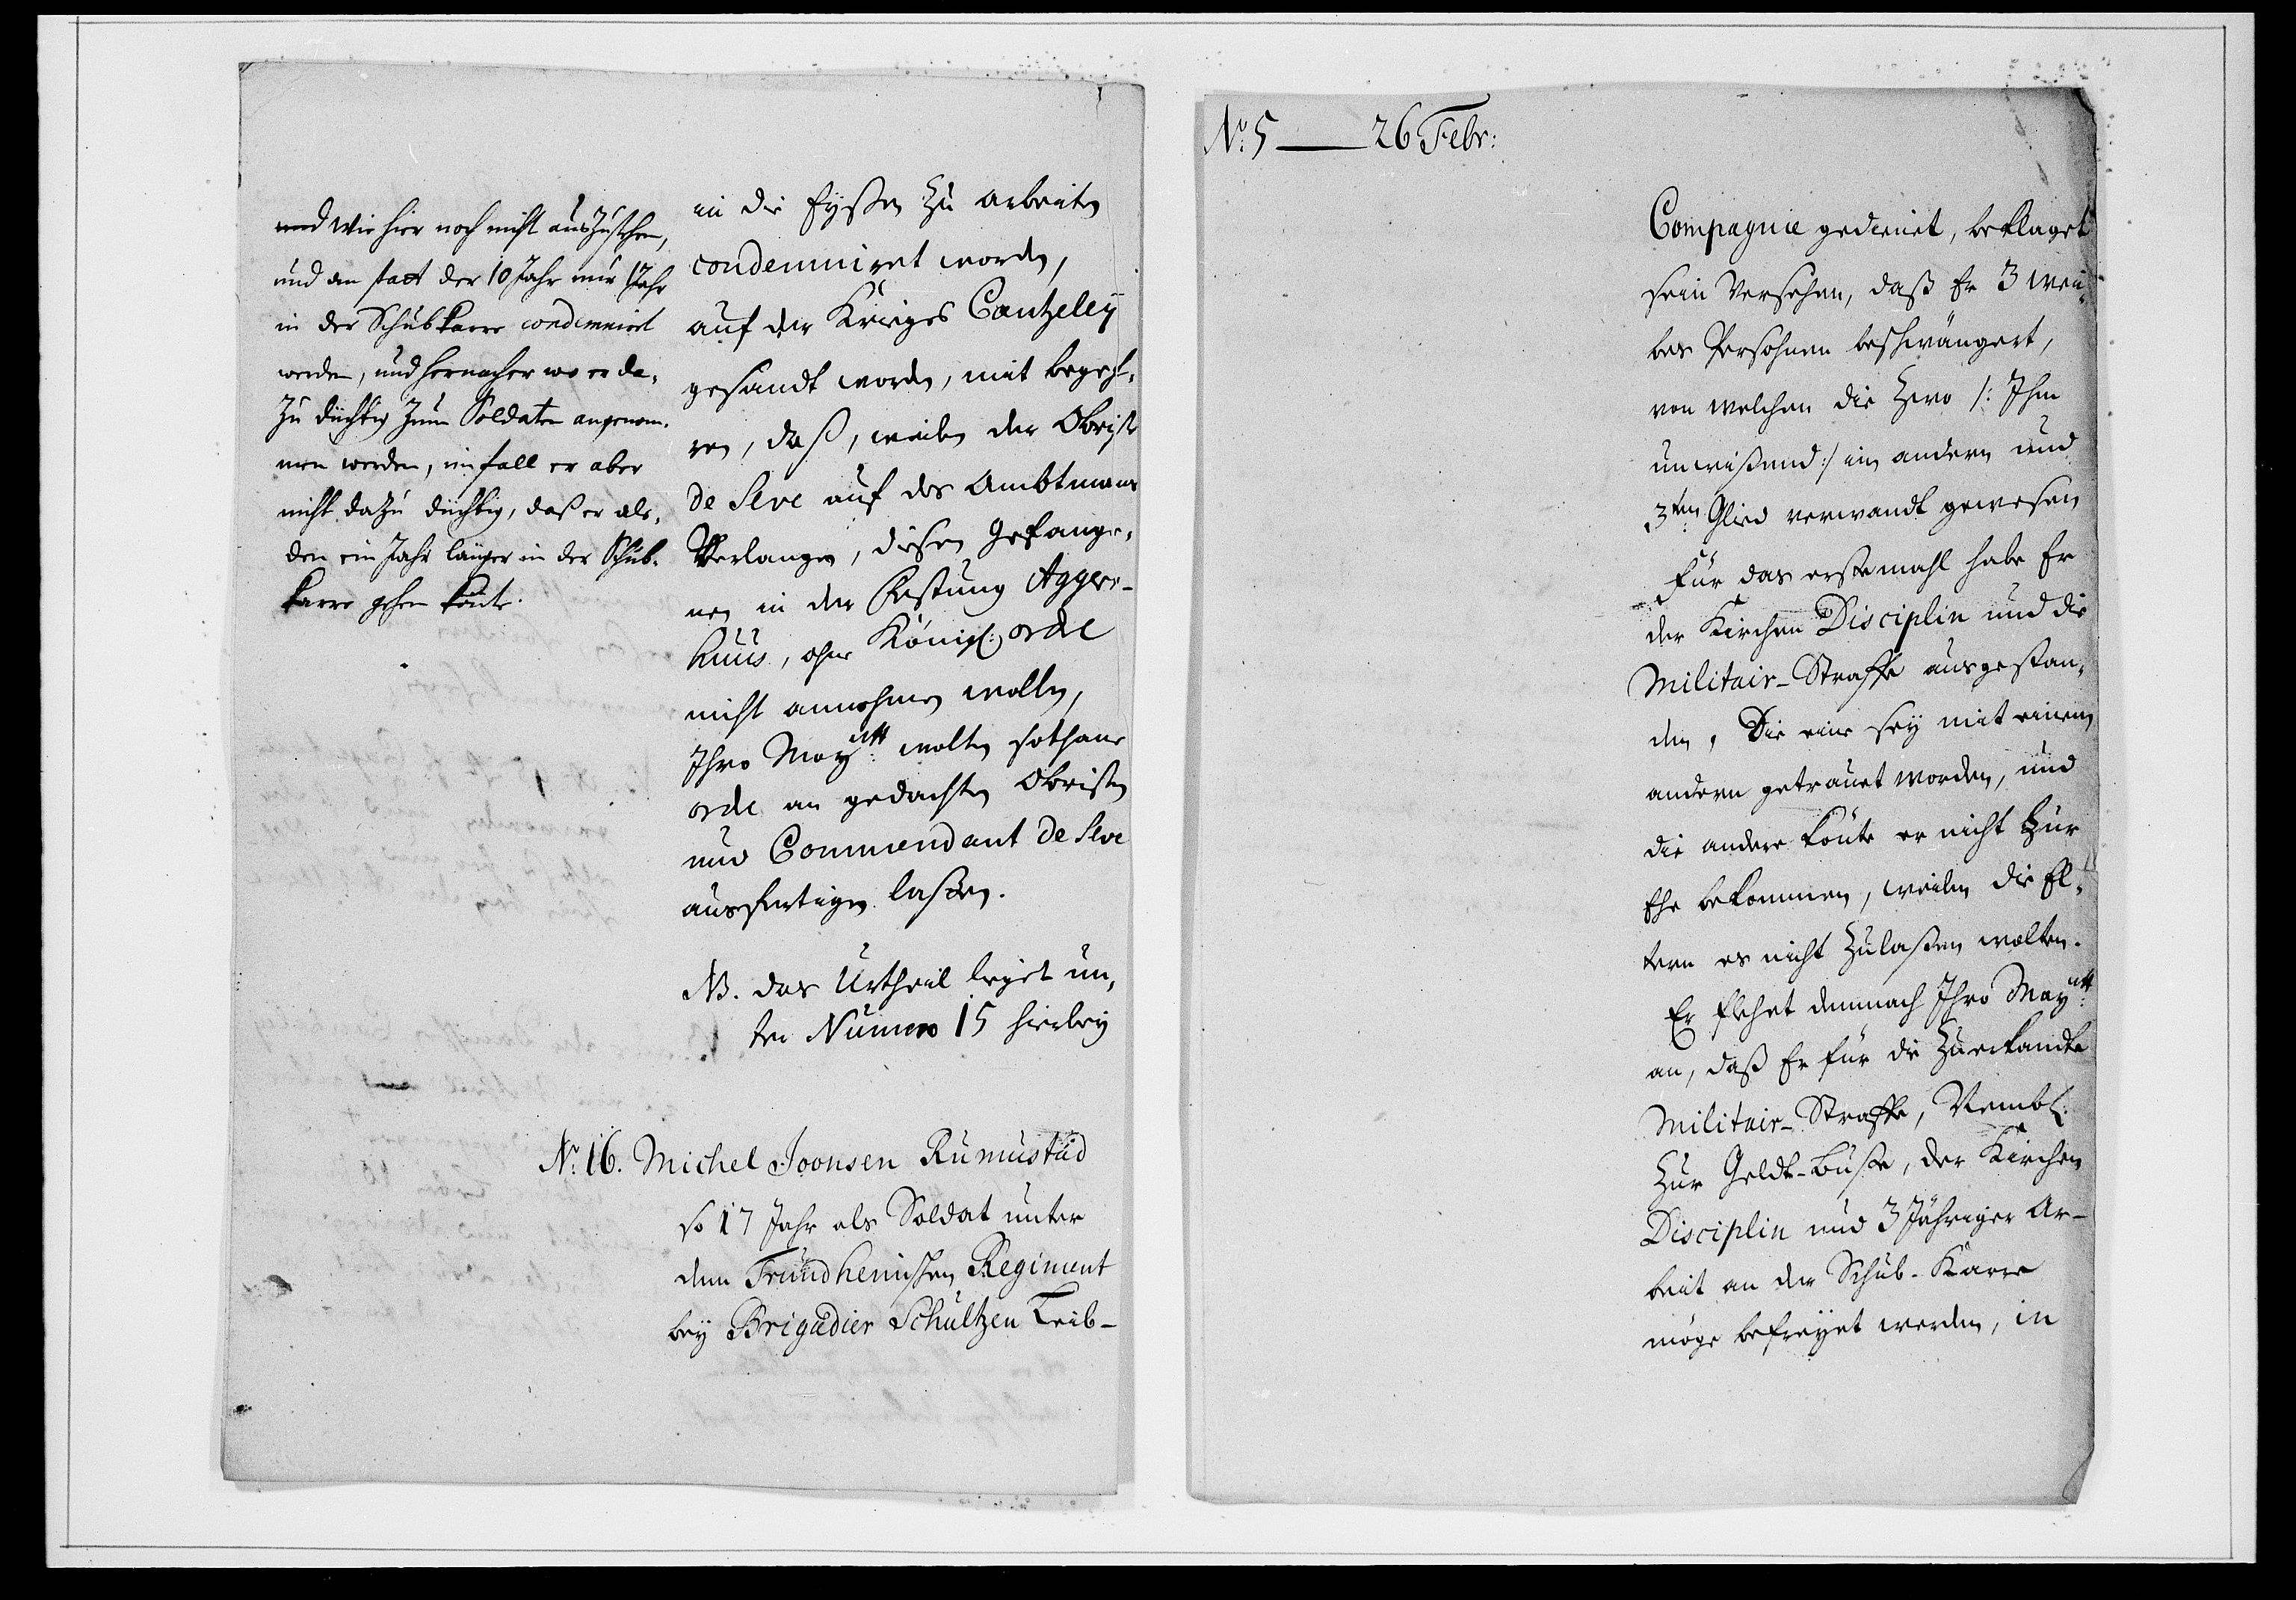 und wie hier noch nicht auszustehen,
und an statt der 10 Jahr nur 1 Jahr
in der Schubkarre condemniret
werden, und hernacher wo er da-
zu düchtig zum Soldaten angenom-
men werden, im fall er aber
nicht dazu düchtig, daß er als-
den ein Jahr länger in der Schub-
karre gehen könte.
in die Eyßen zu arbeiten
condemniret worden,
auf der Krieges Cantzeley
gesandt worden, mit begeh-
ren, daß, weilen der Obrist
de Seve auf des Ambtmans
Verlangen, diesen Gefange-
nen in der Festung Agger-
huus, ohne Königl: ordre
nicht annehmen wollen,
Ihro Mayytt: wolten sothane
orde an gedachten Obristen
und Commendant de Seve
ausfertigen laßen.
NB. das Urtheil lieget un-
ter Numero 15 hierbey
No. 16. Michel Joonsen Rumustad
so 17 Jahr als Soldat unter
dem Trundhemischen Regiment
bey Brigadier Schultzen Leib-
No: 5 — 26 Febr:
Compagnie gedienet, beklaget
sein Versehen, daß Er 3 Wei-
bes Persohnen beschwängert,
von welchen die Zwo /: Ihm
unwißend :/ im andern und
3ten Glied verwandt gewesen
Für das erstemahl habe Er
der Kirchen Disciplin und die
Militair-Straffe ausgestan-
den, Die eine sey mit einem
andern getrauet worden, und
die andere könte er nicht zur
Ehe bekommen, weilen die El-
tern es nicht zulaßen wolten.
Er flehet demnach Ihro Mayytt:
an, daß Er für die zuerkandte
Militair-Straffe, Nembl:
zur Geldt-Buße, der Kirchen
Disciplin und 3 Jähriger Ar-
beit an der Schub-Karre
möge befreyet werden, in